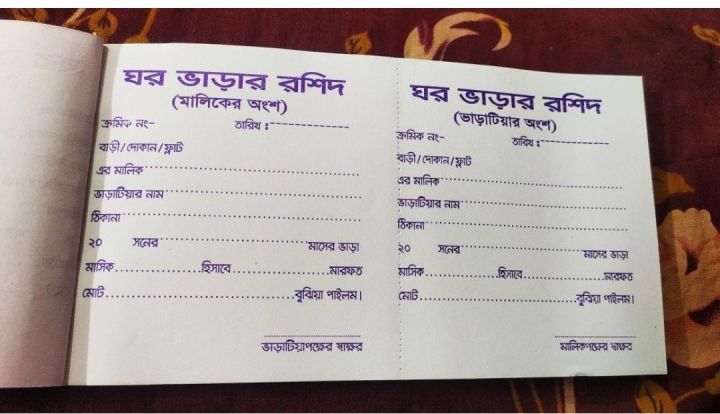 ঘর ভাড়ার রশিদ
(মালিকের অংশ)
ক্রমিক নং- তারিখ ঃ--------------
বাড়ী/দোকান/ফ্লাট
এর মালিক....................................................
ভাড়াটিয়ার নাম..............................................
ঠিকানা........................................................
২০ সনের..............................মাসের ভাড়া
মাসিক......................হিসাবে.........................মারফত
মোট................................................বুঝিয়া পাইলাম।
ভাড়াটিয়াপক্ষের স্বাক্ষর
ঘর ভাড়ার রশিদ
(ভাড়াটিয়ার অংশ)
ক্রমিক নং- তারিখ ঃ--------------
বাড়ী/দোকান/ফ্লাট
এর মালিক....................................................
ভাড়াটিয়ার নাম..............................................
ঠিকানা........................................................
২০ সনের..............................মাসের ভাড়া
মাসিক......................হিসাবে.........................মারফত
মোট................................................বুঝিয়া পাইলাম।
মালিকপক্ষের স্বাক্ষর